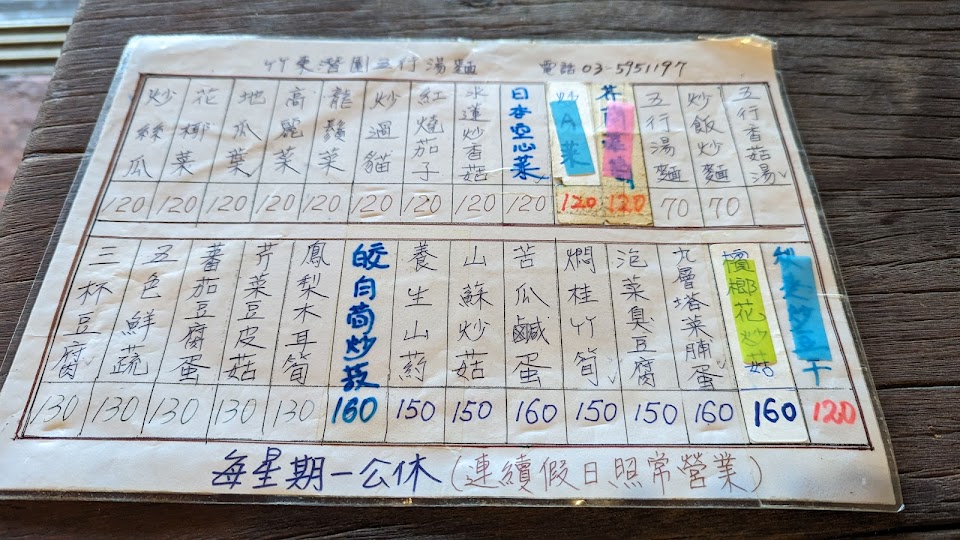 竹東潛園五行湯麵 電話03-5951197
五行香菇湯
炒飯炒麵 70
五行湯麵 70
120
炒A菜 120
日本空心菜 120
水蓮炒香菇 120
紅燒茄子 120
炒過貓 120
龍鬚菜 120
高麗菜 120
地瓜葉 120
花椰菜 120
炒絲瓜 120
炒豆干 120
檳榔花炒菇 160
九層塔菜脯蛋 160
泡菜臭豆腐 150
燜桂竹筍 150
苦瓜鹹蛋 160
山蘇炒菇 150
養生山葯 150
皎白筍炒菇 160
鳳梨木耳筍 130
芹菜豆皮菇 130
蕃茄豆腐蛋 130
五色鮮蔬 130
三杯豆腐 130
每星期一公休(連續假日照常營業)